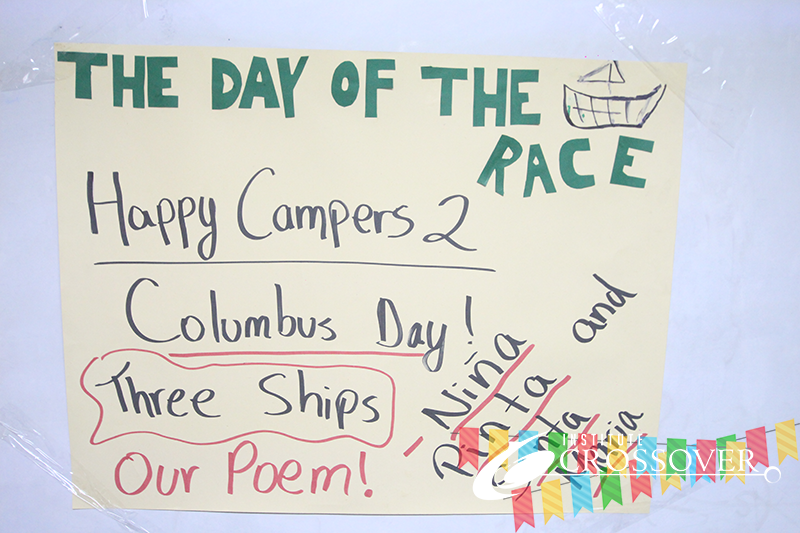 THE DAY OF THE
RACE
Happy Campers 2
Columbus Day!
Three Ships
Our Poem!
Niña
Pinta and
INSTITUTE
CROSSOVER